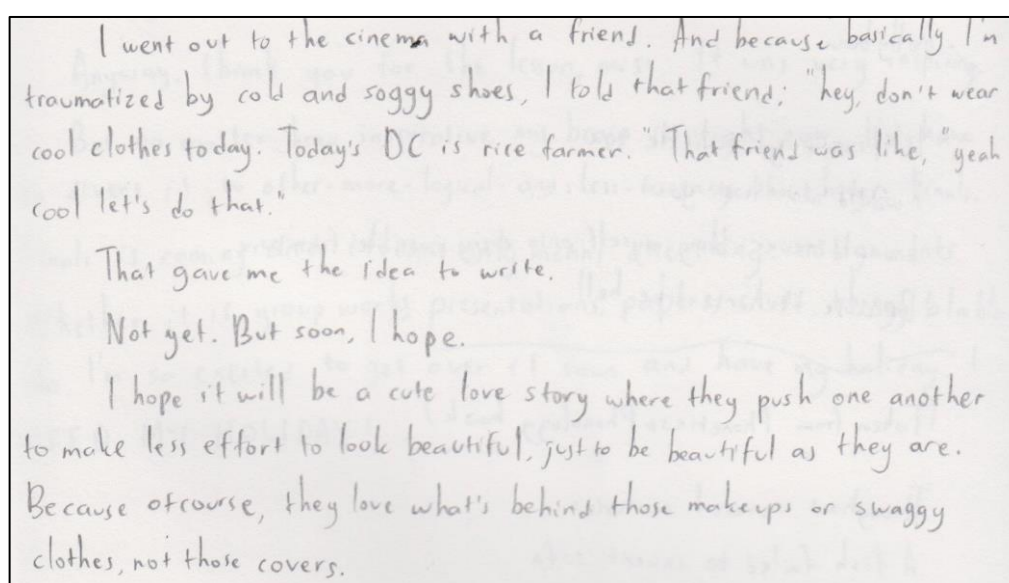 I went out to the cinema with a friend. And because basically I'm
traumatized by cold and soggy shoes, I told that friend; "hey, don't wear
cool clothes today. Today's DC is rice farmer." That friend was like, "yeah
cool let's do that."
That gave me the idea to write.
Not yet. But soon, I hope.
I hope it will be a cute love story where they push one another
to make less effort to look beautiful, just to be beautiful as they are.
Because ofcourse, they love what's behind those makeups or swaggy
clothes, not those covers.